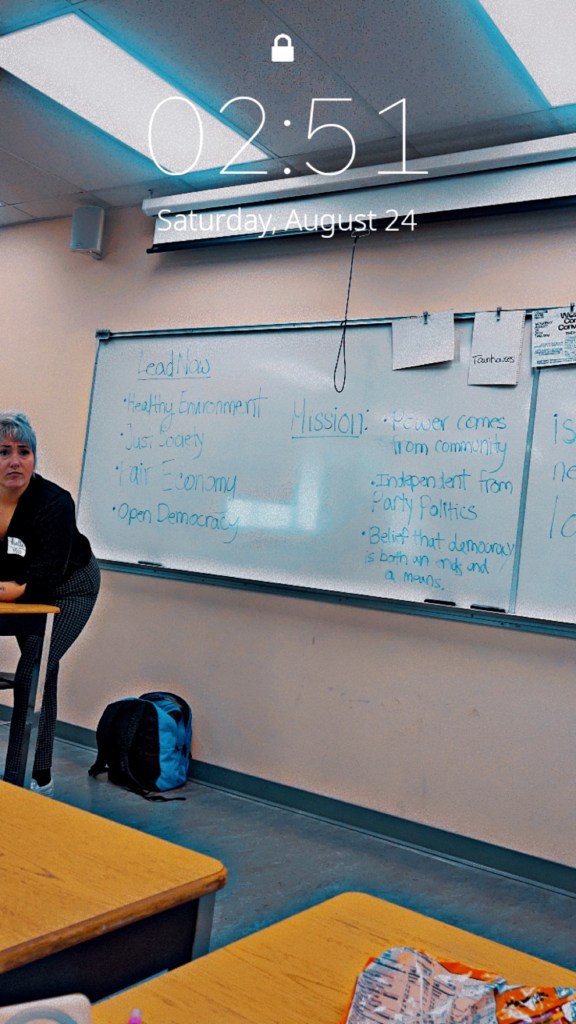 02:51
Saturday, August 24
LeadNow
• Healthy Environment
• Just Society
Fair Economy
• Open Democracy
Mission:
• Power comes
from community
• Independent from
Party Politics
• Belief that democracy
is both an ends and
a means.
Townhouses
is